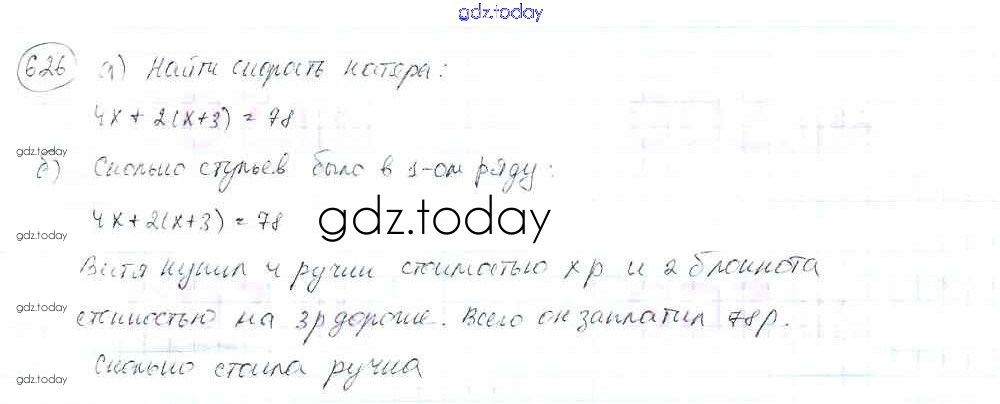 gdz.today
626 а) Найти скорость катера:
4x + 2(x+3) = 78
gdz.today
б) Сколько стульев было в 1-ом ряду:
4x+2(x+3) = 78
gdz.today
gdz.today
Витя купил 4 ручки стоимостью x р и 2 блокнота
gdz.today
стоимостью на 3р дороже. Всего он заплатил 78р.
Сколько стоила ручка
gdz.today